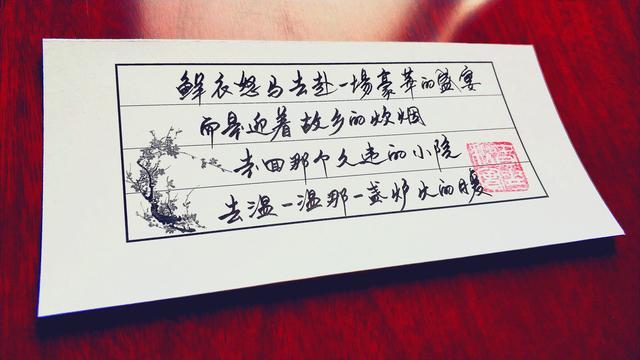 鲜衣怒马去赴一場豪华的盛宴
而是迎着故乡的炊烟
去回那个久违的小院
去温一温那一盏炉火的暖